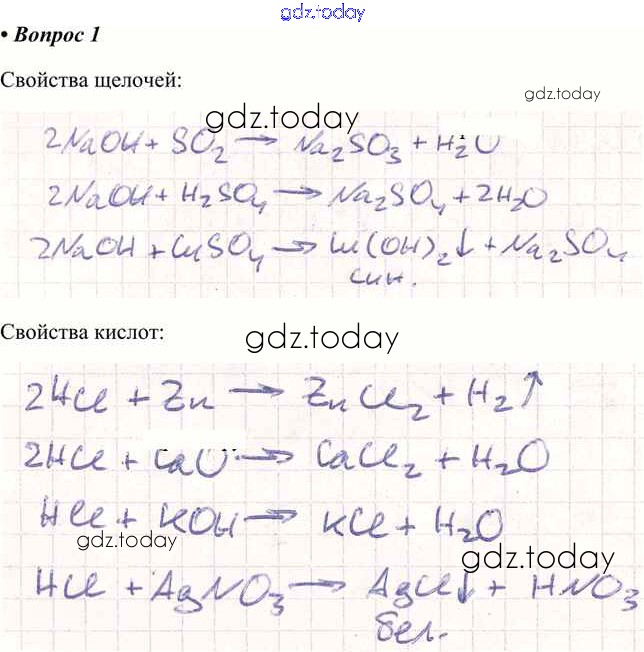 gdz.today
• Вопрос 1
Свойства щелочей:
gdz.today
gdz.today
2NaOH + SO₂ → Na₂SO₃ + H₂O
2NaOH + H₂SO₄ → Na₂SO₄ + 2H₂O
2NaOH + CuSO₄ → Cu(OH)₂↓ + Na₂SO₄
син.
Свойства кислот:
gdz.today
2HCl + Zn → ZnCl₂ + H₂↑
2HCl + CaO → CaCl₂ + H₂O
HCl + KOH → KCl + H₂O
gdz.today
gdz.today
HCl + AgNO₃ → AgCl↓ + HNO₃
бел.